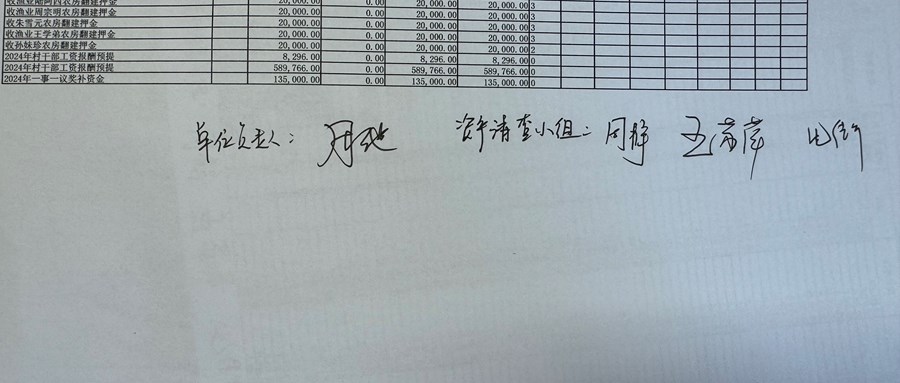 收渔业陆阿四农房翻建押金 20,000.00 0.00 20,000.00 20,000.00 3
收渔业周宗明农房翻建押金 20,000.00 0.00 20,000.00 20,000.00 3
收朱雪元农房翻建押金 20,000.00 0.00 20,000.00 20,000.00 3
收渔业王学弟农房翻建押金 20,000.00 0.00 20,000.00 20,000.00 3
收孙妹珍农房翻建押金 20,000.00 0.00 20,000.00 20,000.00 2
2024年村干部工资报酬预提 8,296.00 0.00 8,296.00 8,296.00 0
2024年村干部工资报酬预提 589,766.00 0.00 589,766.00 589,766.00 0
2024年一事一议奖补资金 135,000.00 0.00 135,000.00 135,000.00 0
单位负责人: 资产清查小组: